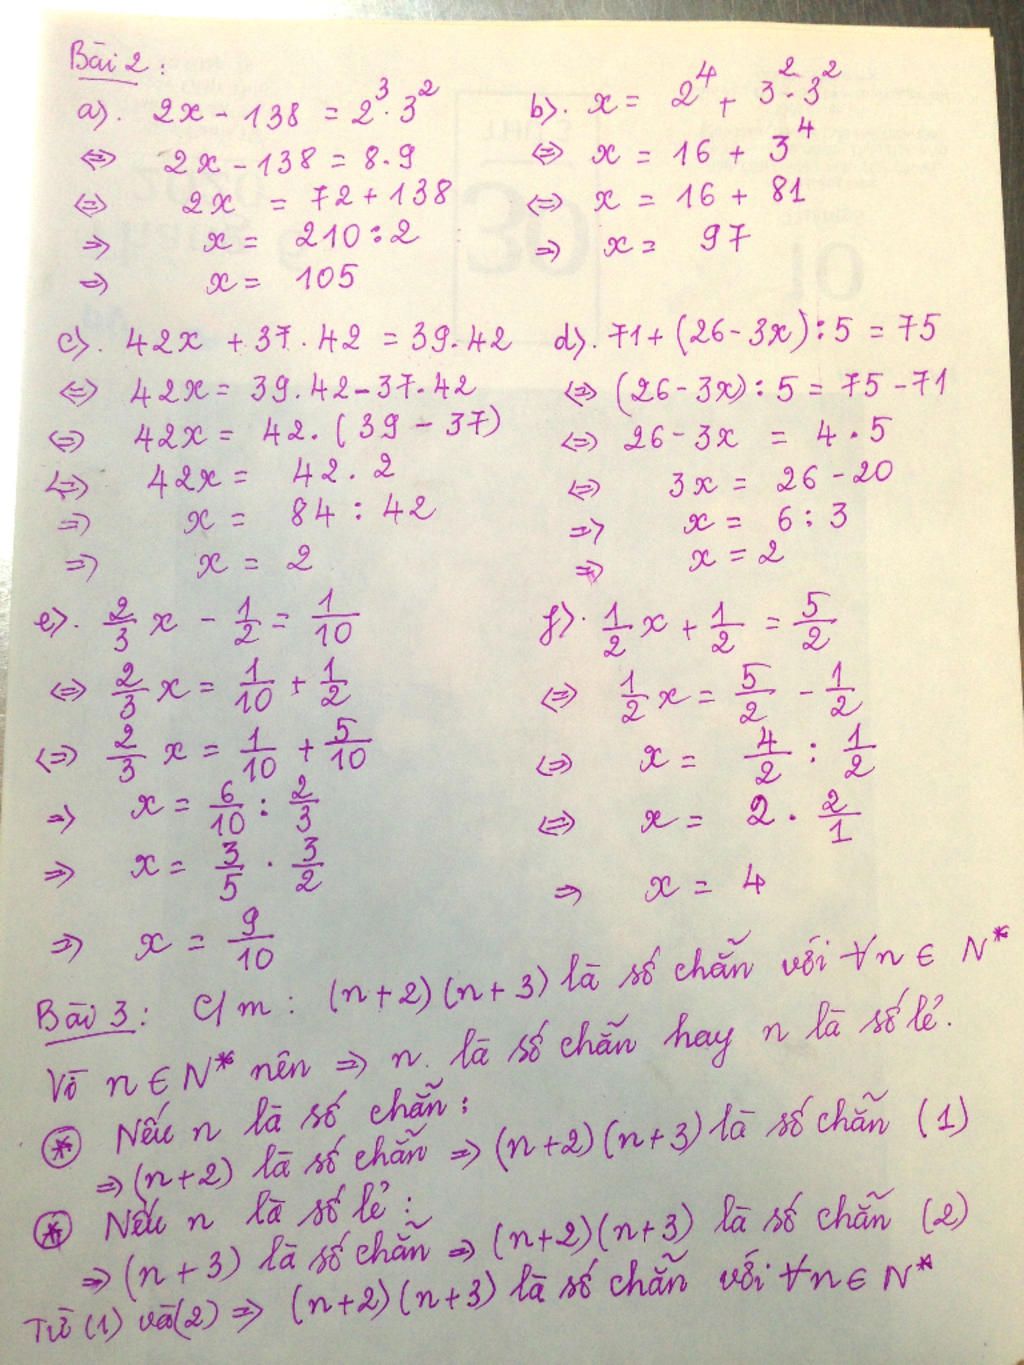 Bài 2:
a). 2x - 138 = 2³ · 3²
⇔ 2x - 138 = 8·9
⇔ 2x = 72 + 138
⇒ x = 210 : 2
⇒ x = 105
b). x = 2⁴ + 3² · 3²
⇔ x = 16 + 3⁴
⇔ x = 16 + 81
⇒ x = 97
c). 42x + 37 . 42 = 39.42
⇔ 42x = 39.42 - 37.42
⇔ 42x = 42. (39 - 37)
⇔ 42x = 42 . 2
⇒ x = 84 : 42
⇒ x = 2
d). 71 + (26 - 3x) : 5 = 75
⇔ (26 - 3x) : 5 = 75 - 71
⇔ 26 - 3x = 4 . 5
⇔ 3x = 26 - 20
⇒ x = 6 : 3
⇒ x = 2
e). 2/3 x - 1/2 = 1/10
⇔ 2/3 x = 1/10 + 1/2
⇔ 2/3 x = 1/10 + 5/10
⇒ x = 6/10 : 2/3
⇒ x = 3/5 · 3/2
⇒ x = 9/10
f). 1/2 x + 1/2 = 5/2
⇔ 1/2 x = 5/2 - 1/2
⇔ x = 4/2 : 1/2
⇔ x = 2 . 2/1
⇒ x = 4
Bài 3: C/m : (n+2)(n+3) là số chẵn với ∀n ∈ N*
Vì n ∈ N* nên ⇒ n. là số chẵn hay n là số lẻ.
⊛ Nếu n là số chẵn:
⇒ (n+2) là số chẵn ⇒ (n+2)(n+3) là số chẵn (1)
⊛ Nếu n là số lẻ:
⇒ (n+3) là số chẵn ⇒ (n+2)(n+3) là số chẵn (2)
Từ (1) và (2) ⇒ (n+2)(n+3) là số chẵn với ∀n ∈ N*